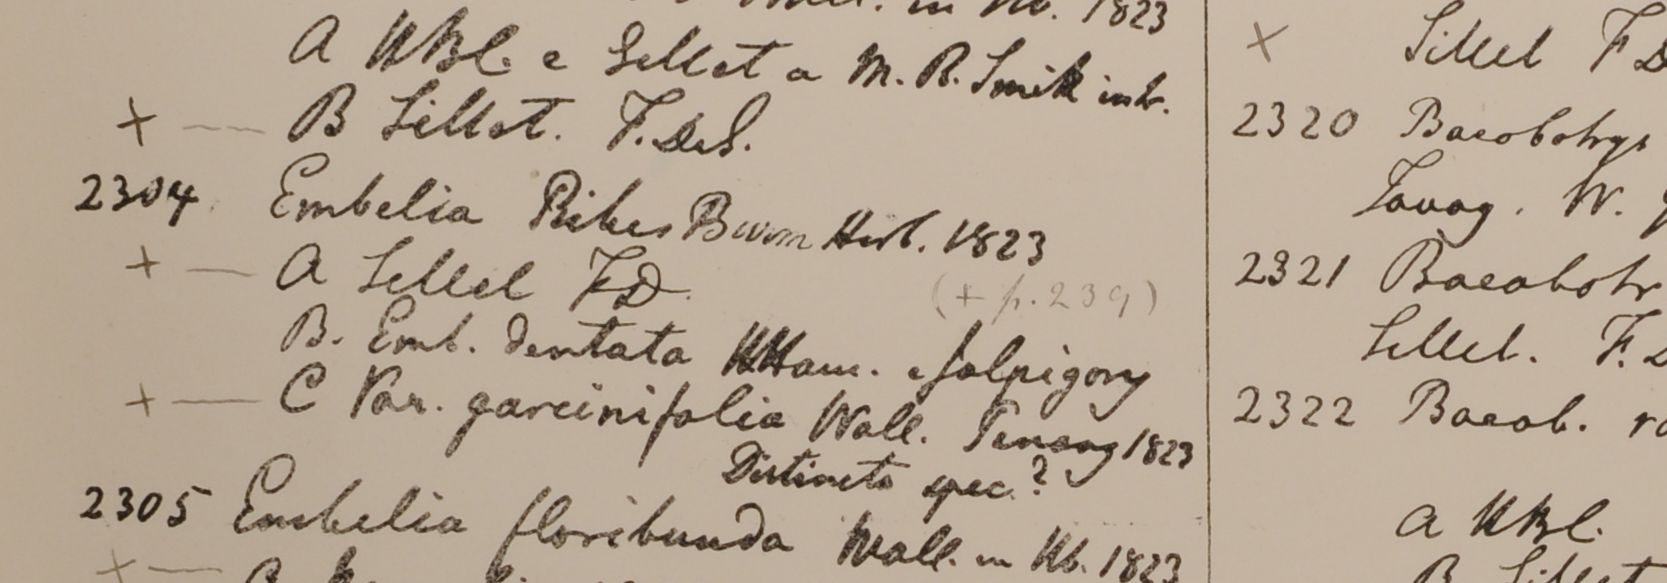 in Hb. 1823
A HBC. e Sellet a M. R. Smith inb.
+ — B Sillet. F. DeS.
2304 Embelia Ribes Burm Herb. 1823
+ — A Sellet FD
(+ p. 239)
B. Emb. dentata HHam. e Jolpigory
+ — C Var. garcinifolia Wall. Penang 1823
Distincta spec.?
2305 Embelia floribunda Wall. in Hb. 1823
+ —
× Sillet F D
2320 Baeobotrys
Tavoy. W.
2321 Baeobotr
Sillet. F.
2322 Baeob.
A HBC.
B Sillet